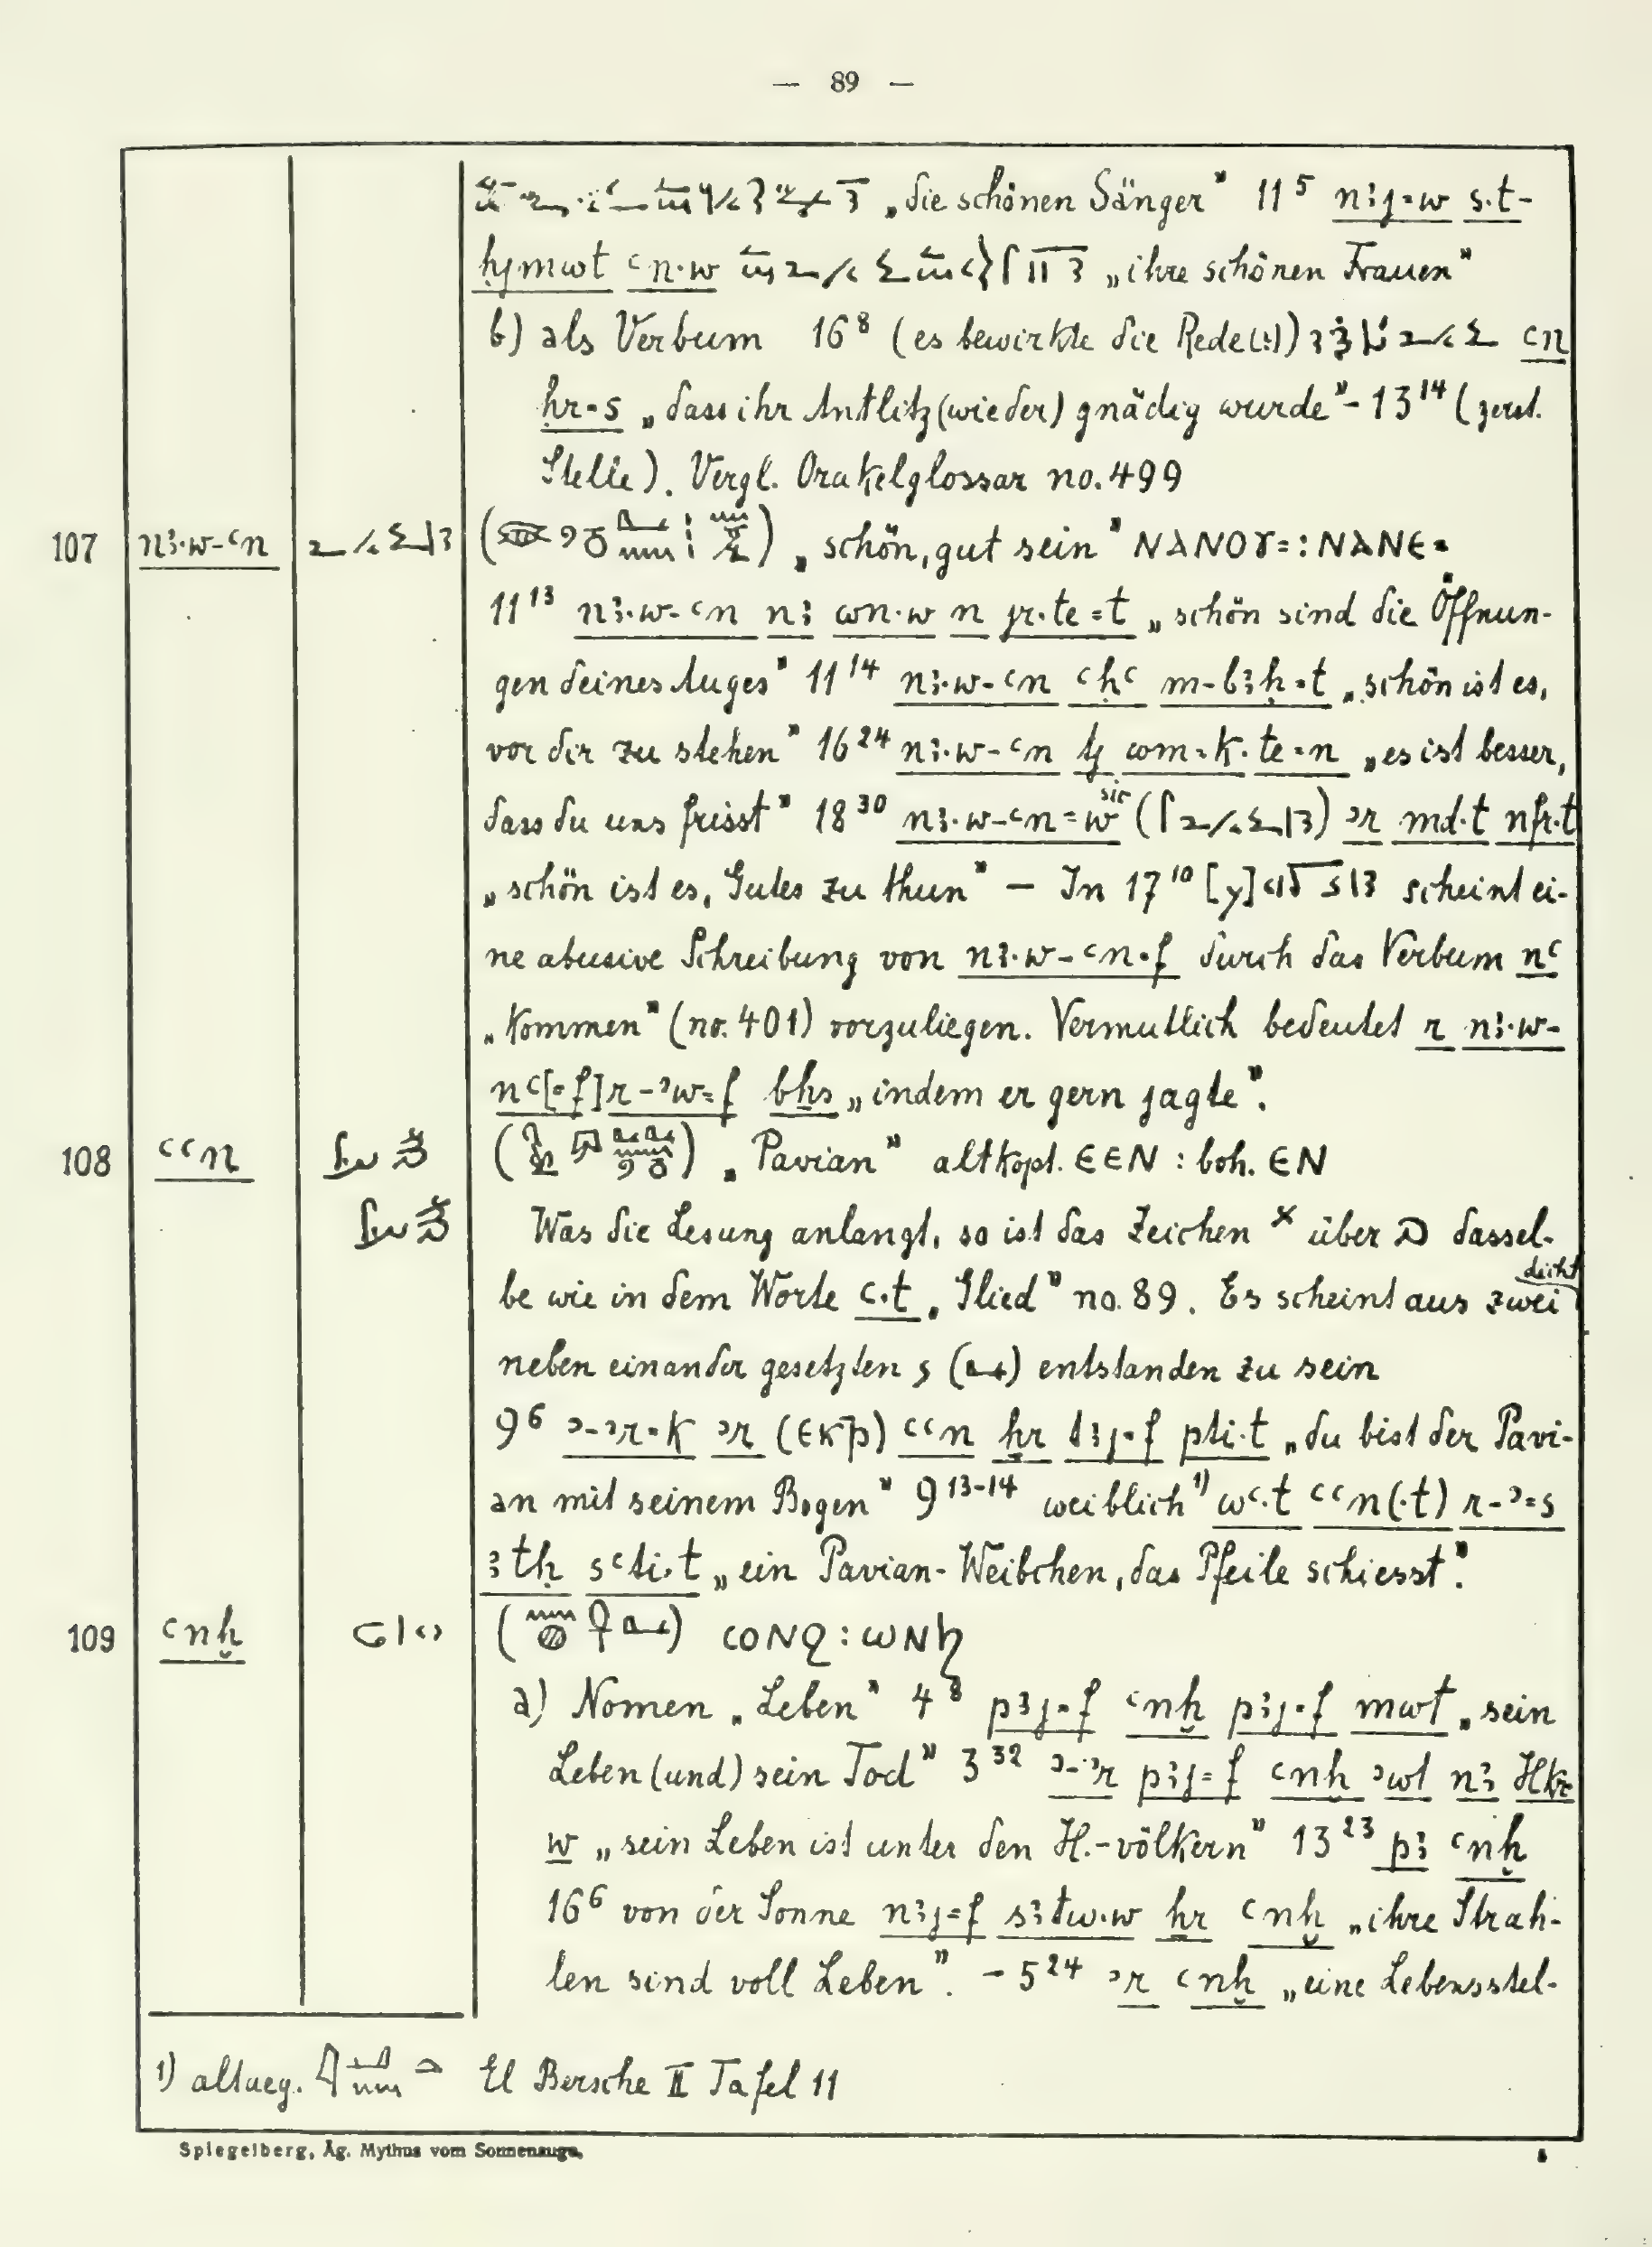 — 89 —
„die schönen Sänger” 11⁵ nꜣj=w s.t-
ḥjmwt ꜥn.w „ihre schönen Frauen”
b) als Verbum 16⁸ (es bewirkte die Rede(?)) ꜥn
ḥr=s „dass ihr Antlitz (wieder) gnädig wurde” – 13¹⁴ (zerst.
Stelle). Vergl. Orakelglossar no. 499
107 nꜣ.w-ꜥn „schön, gut sein” ⲚⲀⲚⲞⲨ= : ⲚⲀⲚⲈ=
11¹³ nꜣ.w-ꜥn nꜣ wn.w n jr.te=t „schön sind die Öffnun-
gen deines Auges” 11¹⁴ nꜣ.w-ꜥn ꜥḥꜥ m-bꜣḥ=t „schön ist es,
vor dir zu stehen” 16²⁴ nꜣ.w-ꜥn tj wm=k.te=n „es ist besser,
dass du uns frisst” 18³⁰ nꜣ.w-ꜥn=w sic ꜣr md.t nfr.t
„schön ist es, Gutes zu thun” — In 17¹⁰ [y] scheint ei-
ne abusive Schreibung von nꜣ.w-ꜥn=f durch das Verbum nꜥ
„kommen” (no. 401) vorzuliegen. Vermutlich bedeutet r nꜣ.w-
nꜥ[=f] r-ꜣw=f bḥs „indem er gern jagte”.
108 ꜥꜥn „Pavian” altkopt. ⲈⲈⲚ : boh. ⲈⲚ
Was die Lesung anlangt, so ist das Zeichen × über dassel-
be wie in dem Worte ꜥ.t „Glied” no. 89. Es scheint aus zwei dicht
neben einander gesetzten entstanden zu sein
9⁶ ꜣ-ꜣr=k ꜣr (ⲈⲔⲢ̄) ꜥꜥn ẖr tꜣj=f pti.t „du bist der Pavi-
an mit seinem Bogen” 9¹³⁻¹⁴ weiblich¹⁾ wꜥ.t ꜥꜥn(.t) r-ꜣ=s
ꜣtḥ sꜥti.t „ein Pavian-Weibchen, das Pfeile schiesst”.
109 ꜥnḫ ⲤⲰⲚϨ : ⲰⲚϦ
a) Nomen „Leben” 4⁸ pꜣj=f ꜥnḫ pꜣj=f mwt „sein
Leben (und) sein Tod” 3³² ꜣ-ꜣr pꜣj=f ꜥnḫ ꜣwt nꜣ Hkr
w „sein Leben ist unter den H.-völkern” 13²³ pꜣ ꜥnḫ
16⁶ von der Sonne nꜣj=f sꜣtw.w ẖr ꜥnḫ „ihre Strah-
len sind voll Leben”. – 5²⁴ ꜣr ꜥnḫ „eine Lebensstel-
1) altaeg. El Bersche II Tafel 11
Spiegelberg, Äg. Mythus vom Sonnenauge.